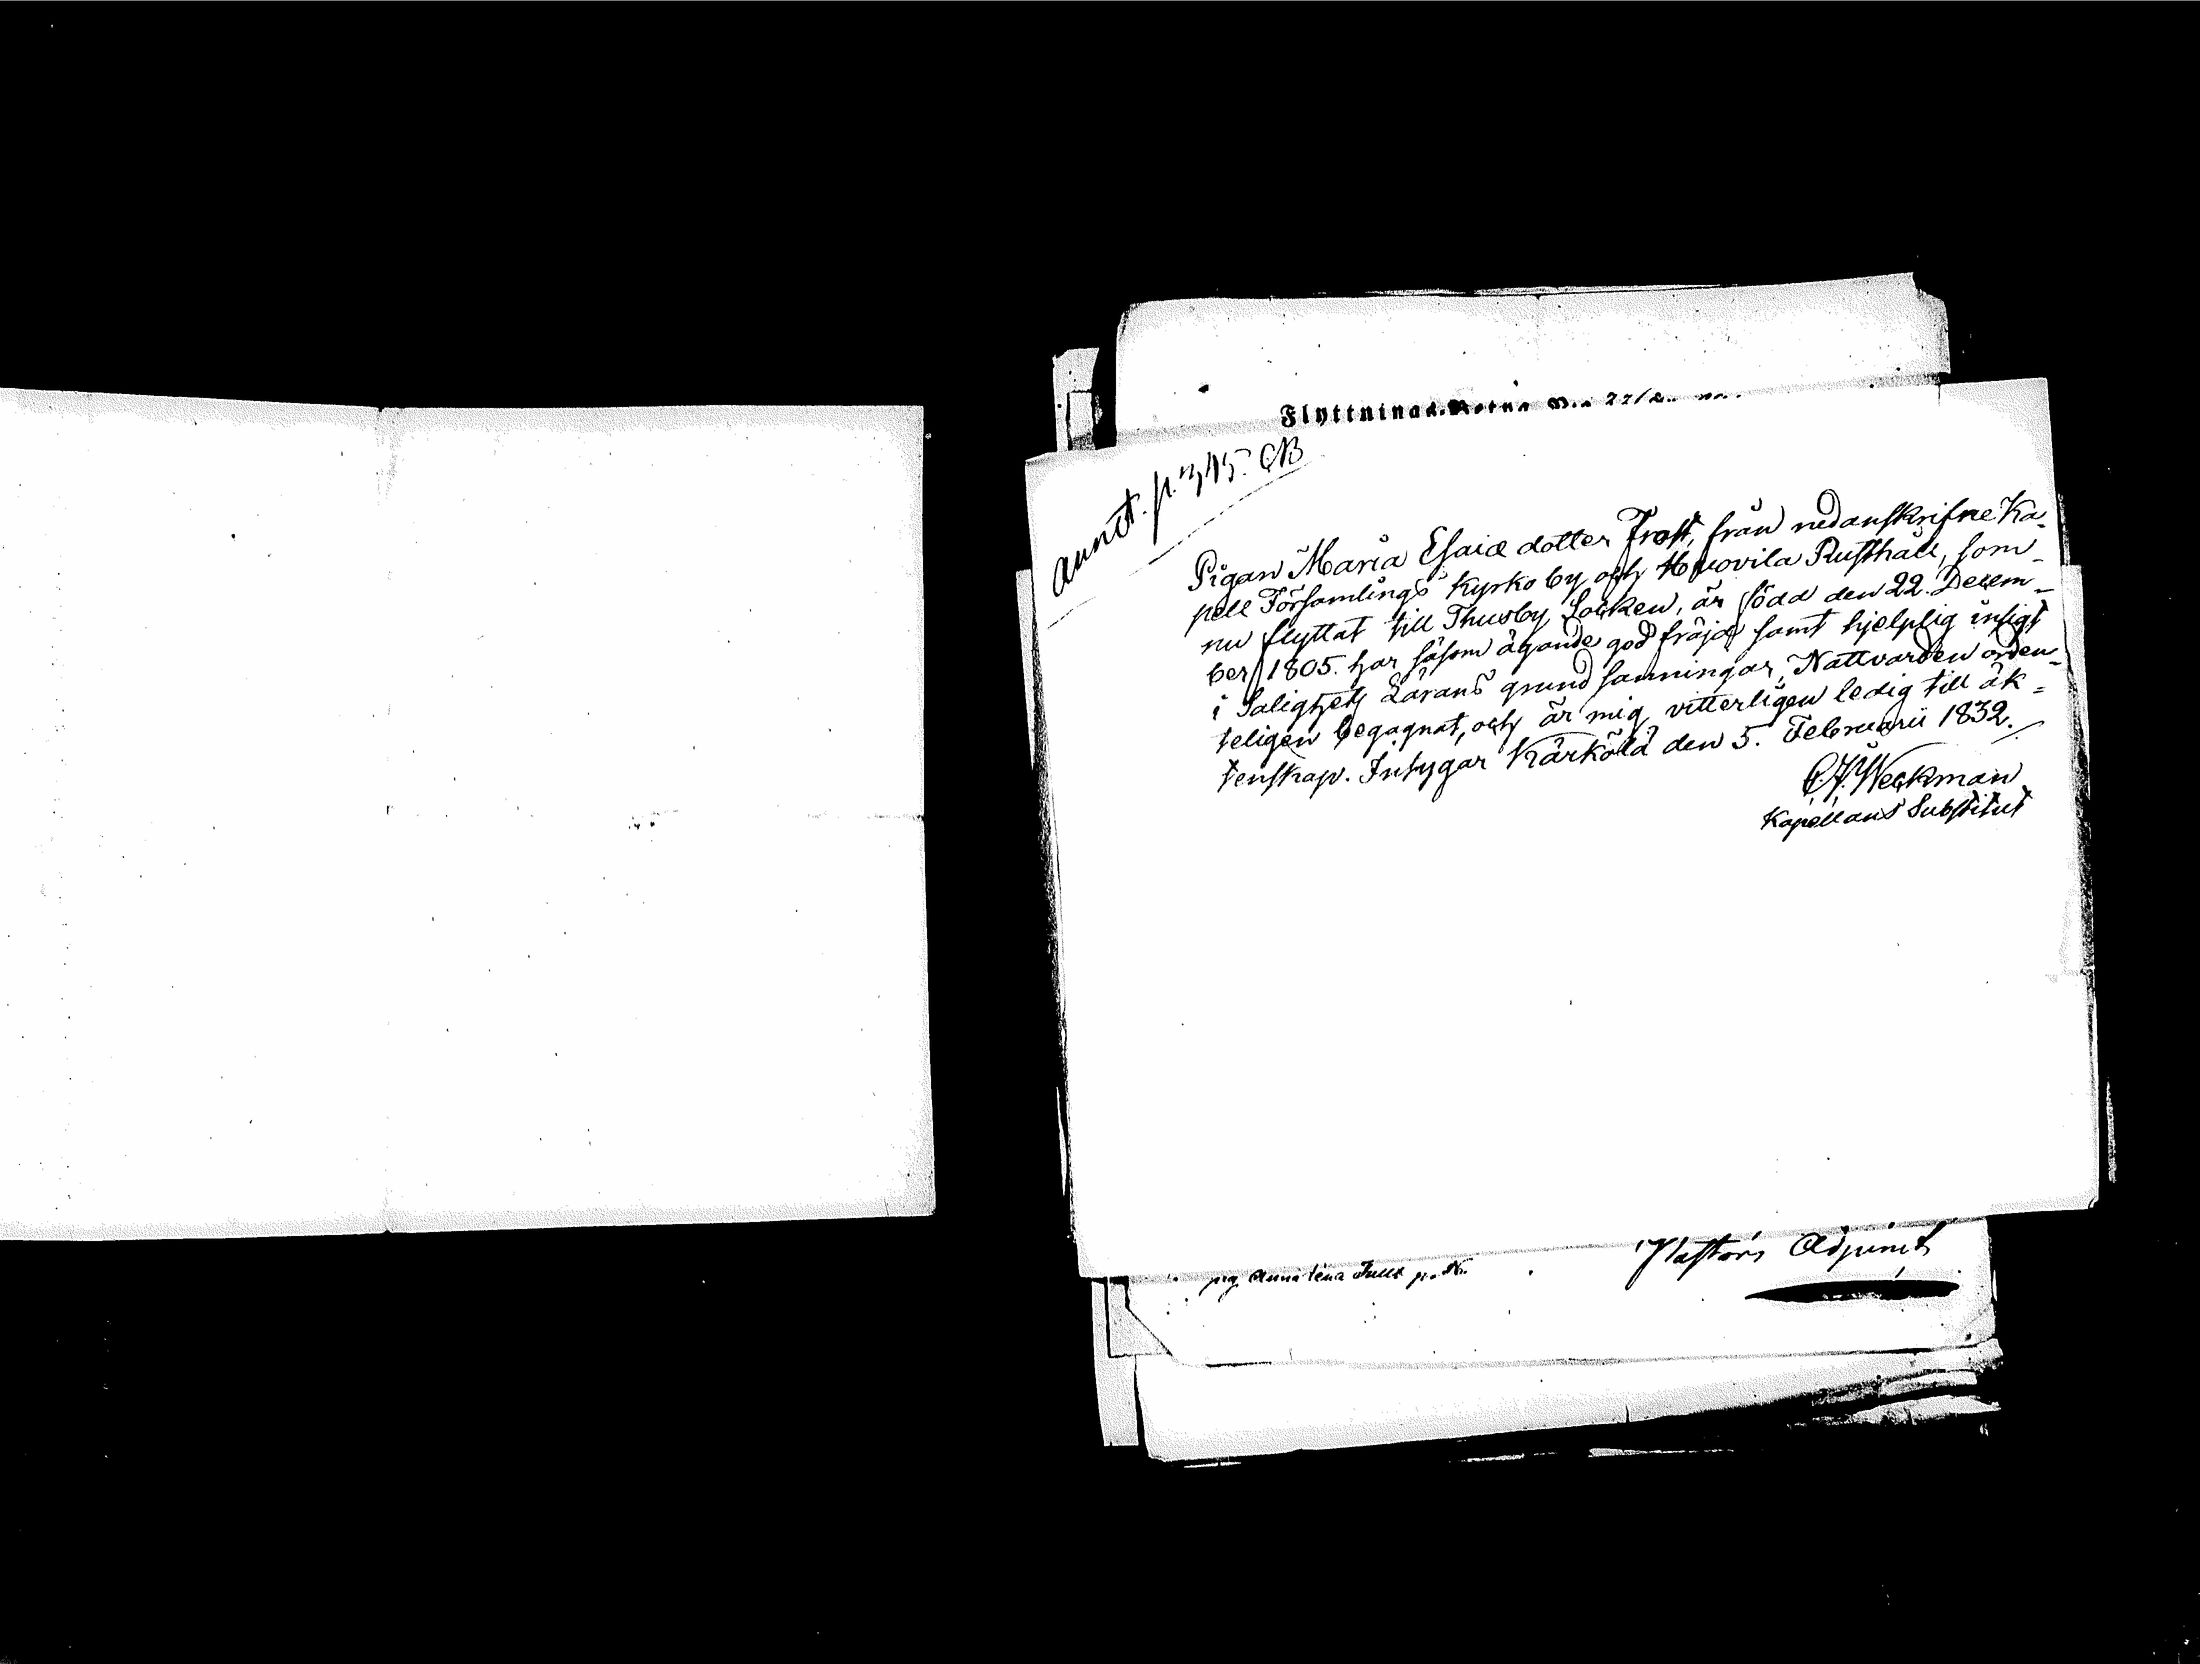 Flyttnings-Betyg
annot. p. 345. CB
Pigan Maria Esaiæ dotter Frost, från nedanskrifne Ka-
pell Församlings Kyrko by och Huovila Rusthåll, som
nu flyttat till Thusby Socken, är född den 22. Decem-
ber 1805. har såsom ägande god fräjd samt hjelplig insigt
i Salighets Lärans grund sanningar, Nattvarden orden-
teligen begagnat, och är mig vitterligen ledig till äk-
tenskap. Intygar Kärkölä den 5. Februarii 1832.
Weckman
Kapellans Substitut
Pastors Adjunct
pig. Anna Lena